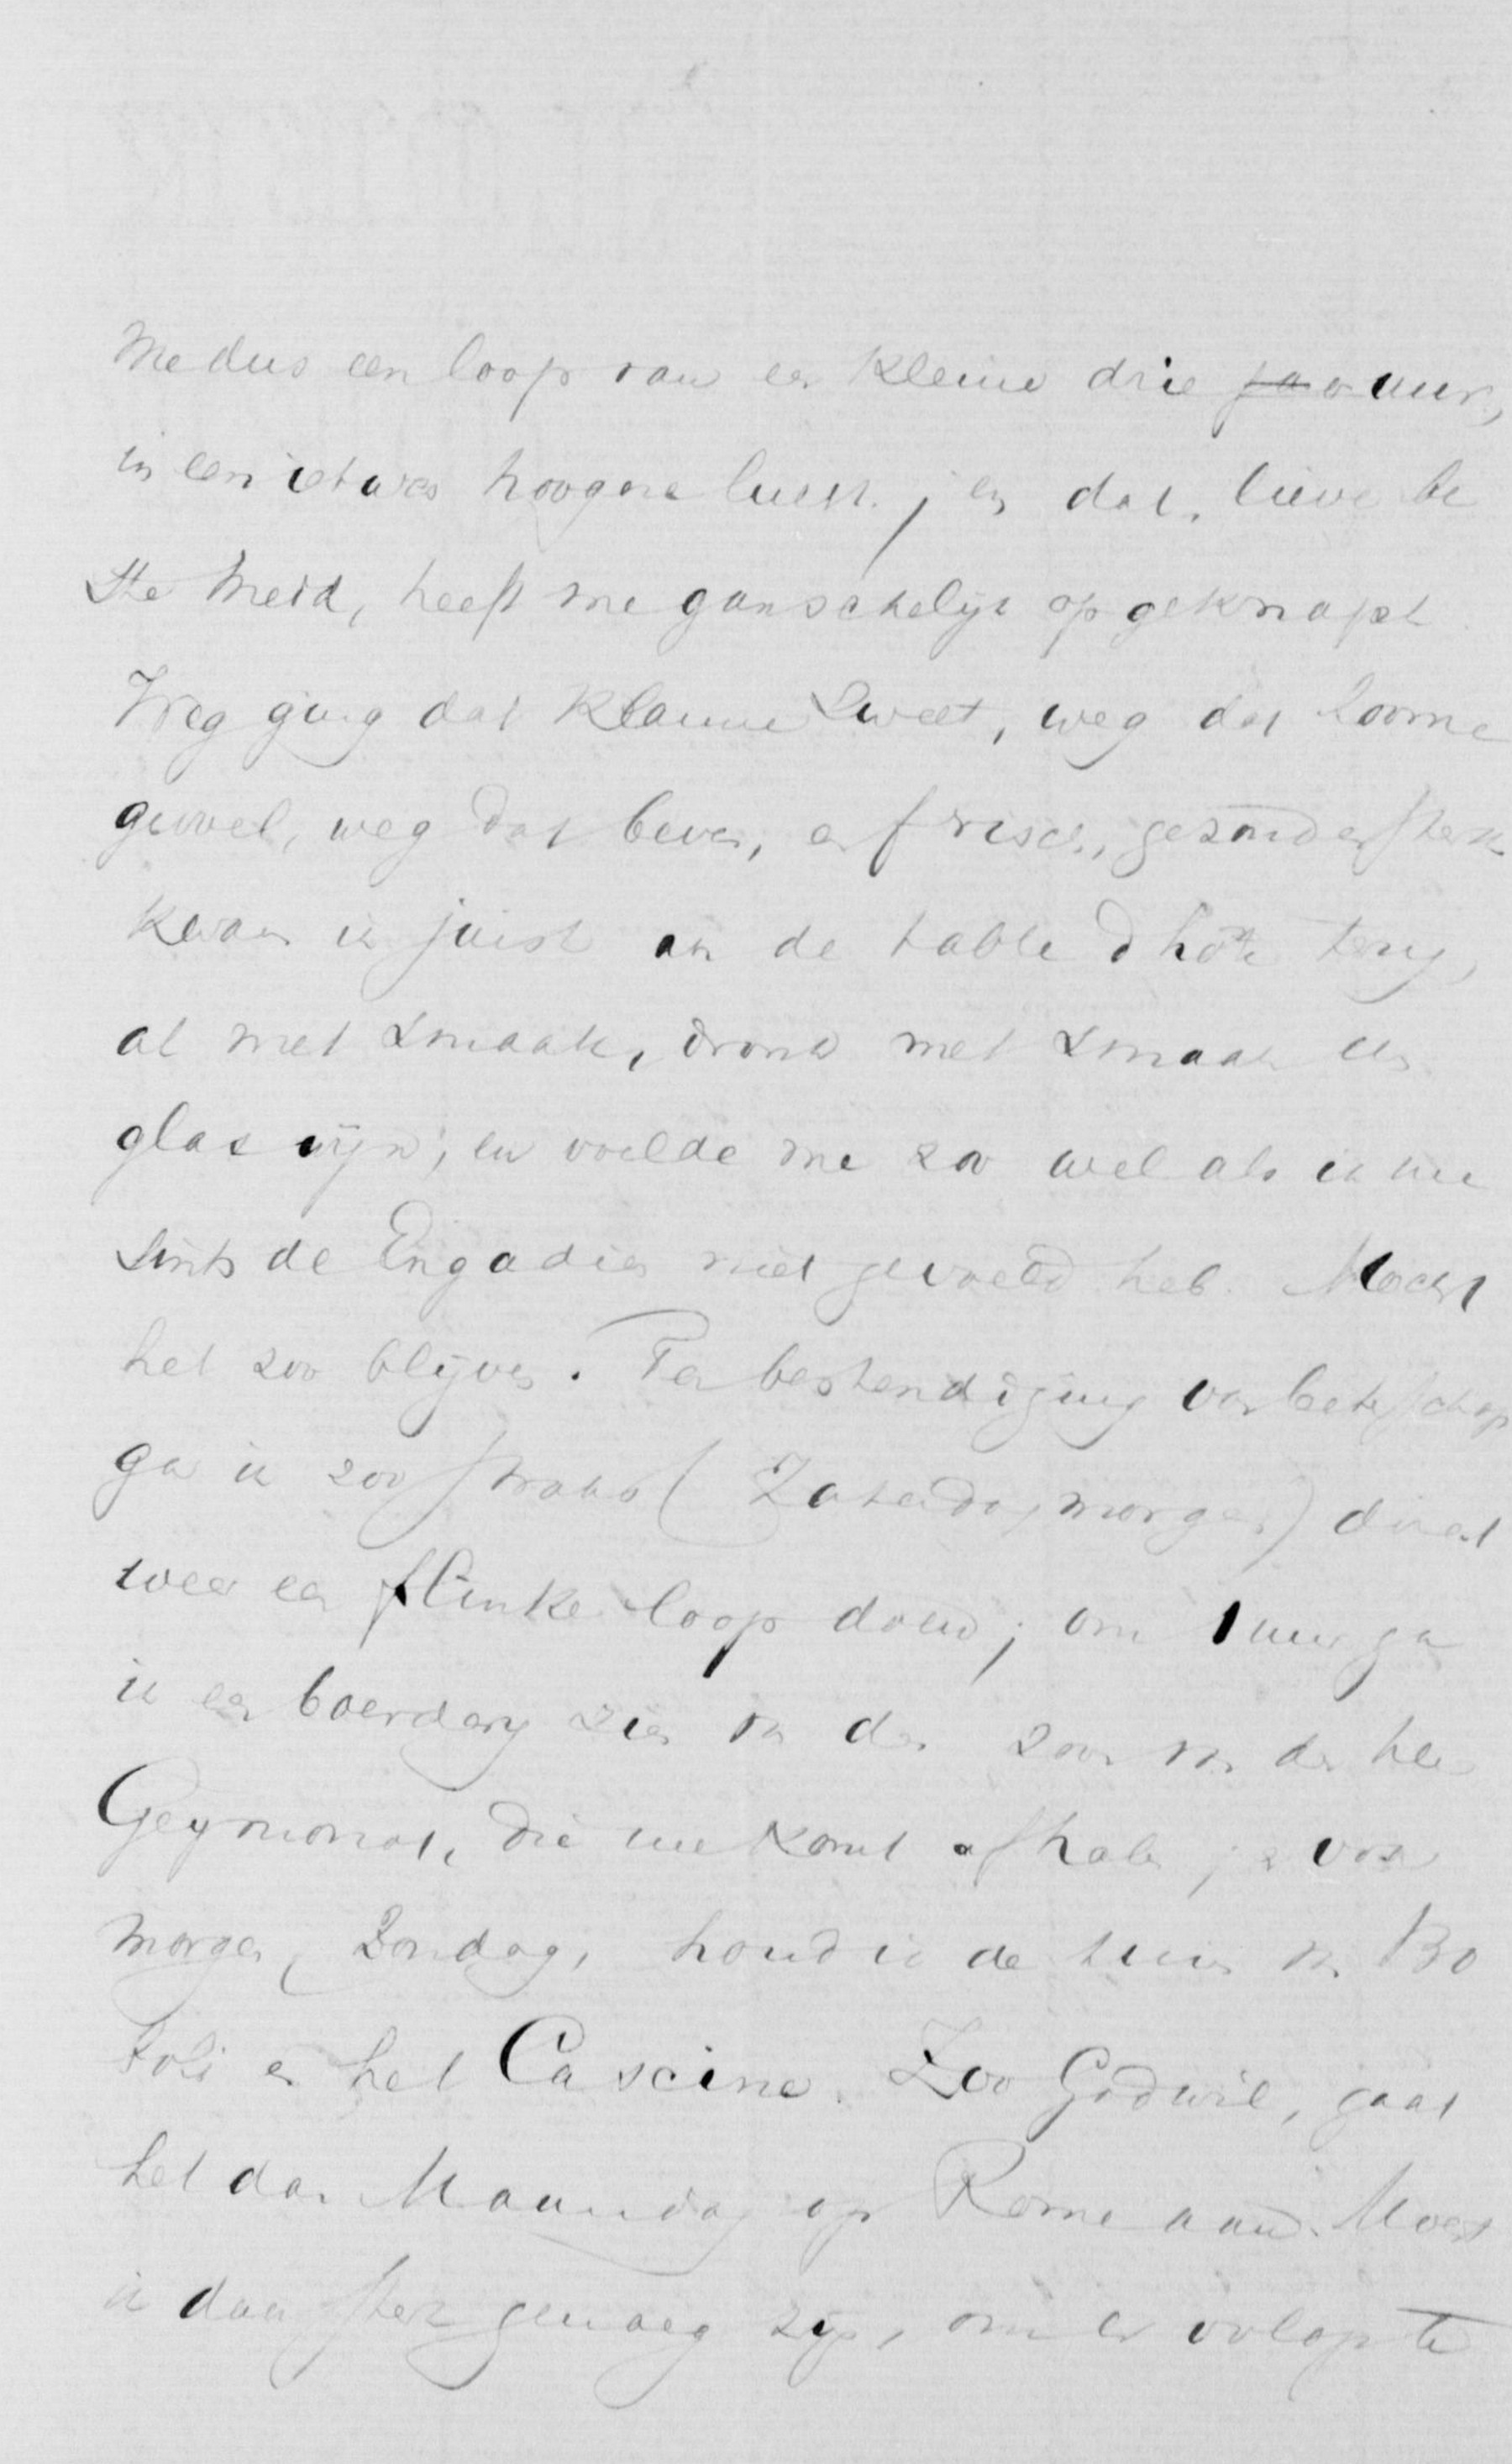 me dus een loop van een kleine drie jaar uur,
in een ietwes hoogere lucht; en dat, lieve be
ste Meid, heeft me ganschelijk opgeknapt.
Weg ging dat klamme Sweet, weg dat loome
gevoel, weg dat beven, en frisch, gezond en sterk
kwam ik juist aan de table d'hôte terug,
at met smaak, dronk met smaak een
glas wijn; en voelde me zoo wel als ik me
sints de Engadien niet gevoeld heb. Mocht
het zoo blijven. Ter bestendiging van beterschap
ga ik zoo straks (Zaterdag morgen) direct
weer een flinke loop doen; om 1 uur ga
ik een boerdery zien van den zoon van den heer
Geymonat, die me komt afhalen; en voor
morgen, Zondag, houd ik de tuin van Bo
boli en het Cascine. Zoo God wil, gaat
het dan Maandag op Rome aan. Moest
ik daar sterk genoeg zijn, om er volop te